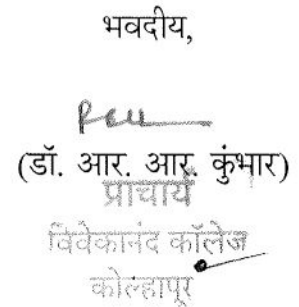 भवदीय,
(डॉ. आर. आर. कुंभार)
प्राचार्य
विवेकानंद कॉलेज
कोल्हापूर